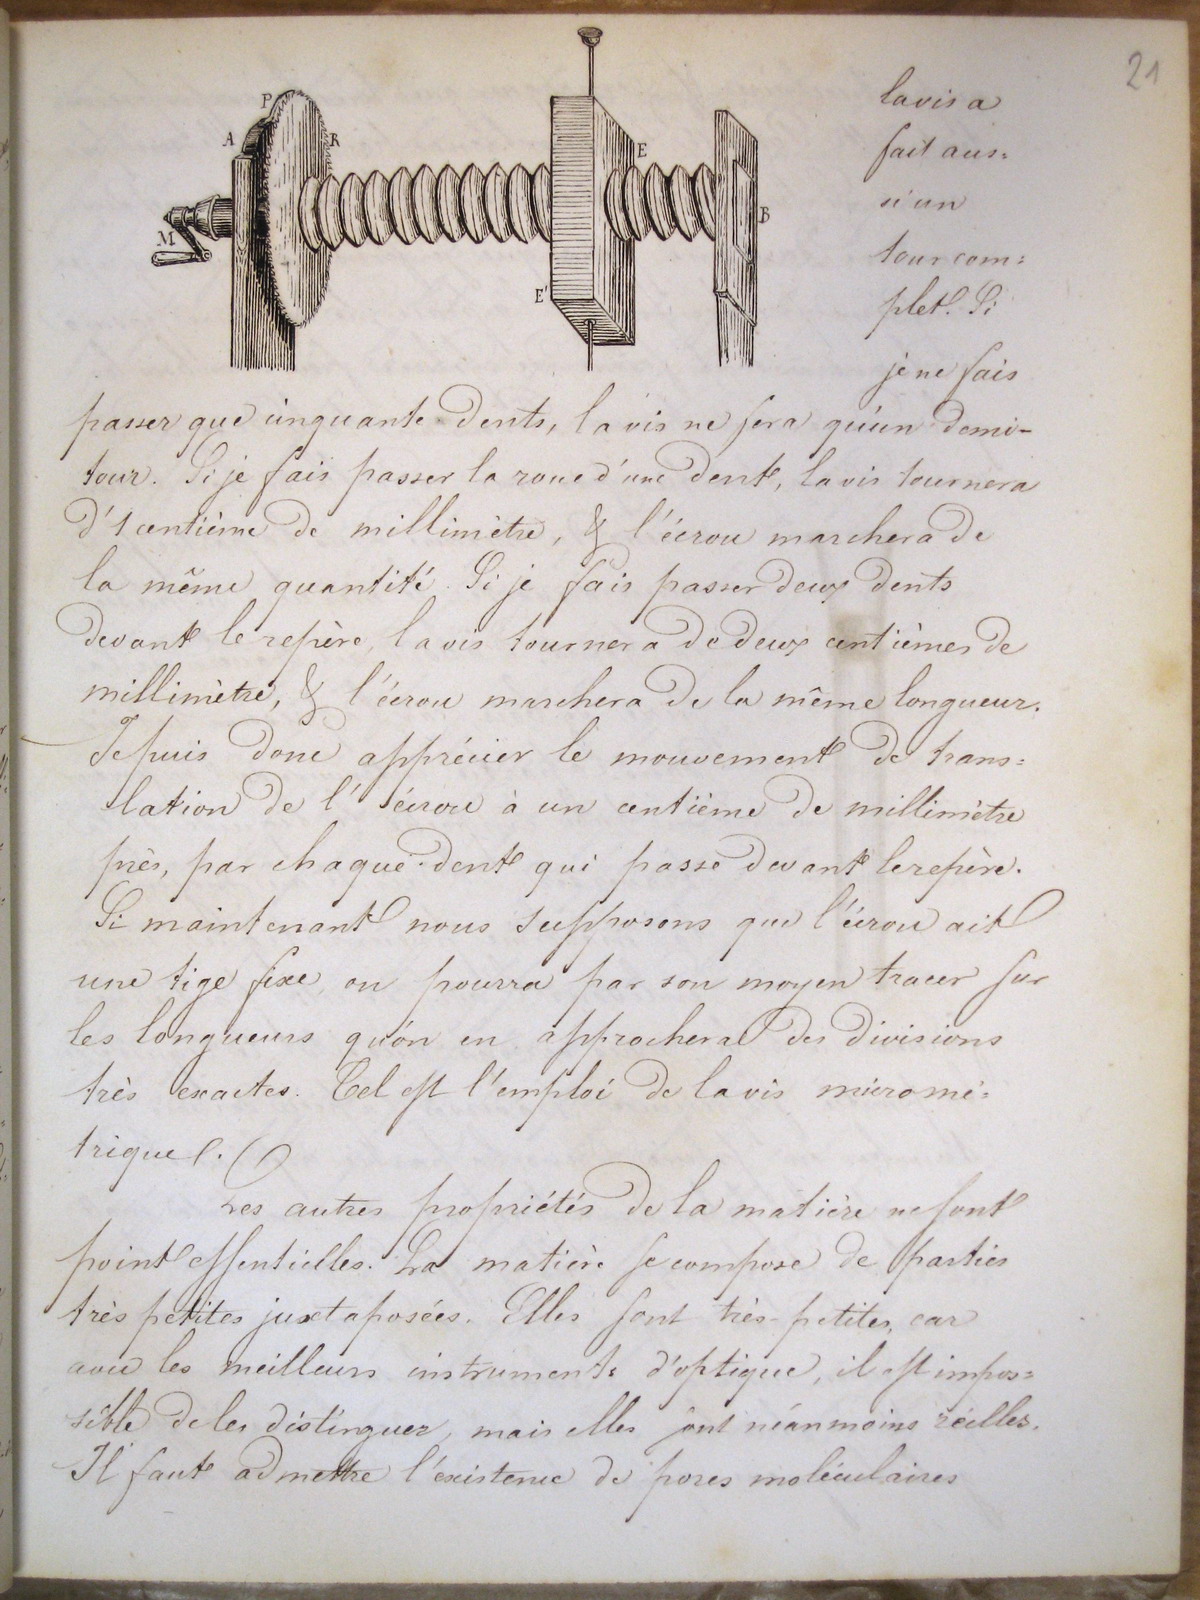 21
P
A
R
E
M
B
E'
la vis a
fait aus=
si un
tour com=
plet. Si
je ne fais
passer que cinquante dents, la vis ne fera qu'un demi-
tour. Si je fais passer la roue d'une dent, la vis tournera
d'1 centième de millimètre, & l'écrou marchera de
la même quantité. Si je fais passer deux dents
devant le repère, la vis tournera de deux centièmes de
millimètre, & l'écrou marchera de la même longueur.
Je puis donc apprécier le mouvement de trans=
lation de l'écrou à un centième de millimètre
près, par chaque dent qui passe devant le repère.
Si maintenant nous supposons que l'écrou ait
une tige fixe, on pourra par son moyen tracer sur
les longueurs qu'on en approchera des divisions
très exactes. Tel est l'emploi de la vis micromé=
trique.
Les autres propriétés de la matière ne sont
point essentielles. La matière se compose de parties
très petites juxtaposées. Elles sont très-petites, car
avec les meilleurs instruments d'optique, il est impos=
sible de les distinguer, mais elles sont néanmoins réelles.
Il faut admettre l'existence de pores moléculaires